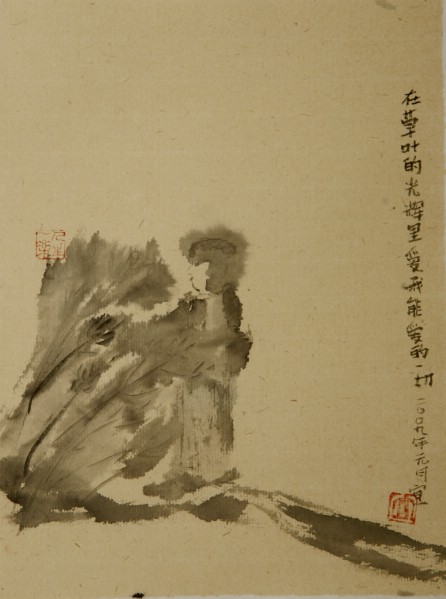 在草叶的光辉里爱我能爱的一切 二〇〇九年元月宜